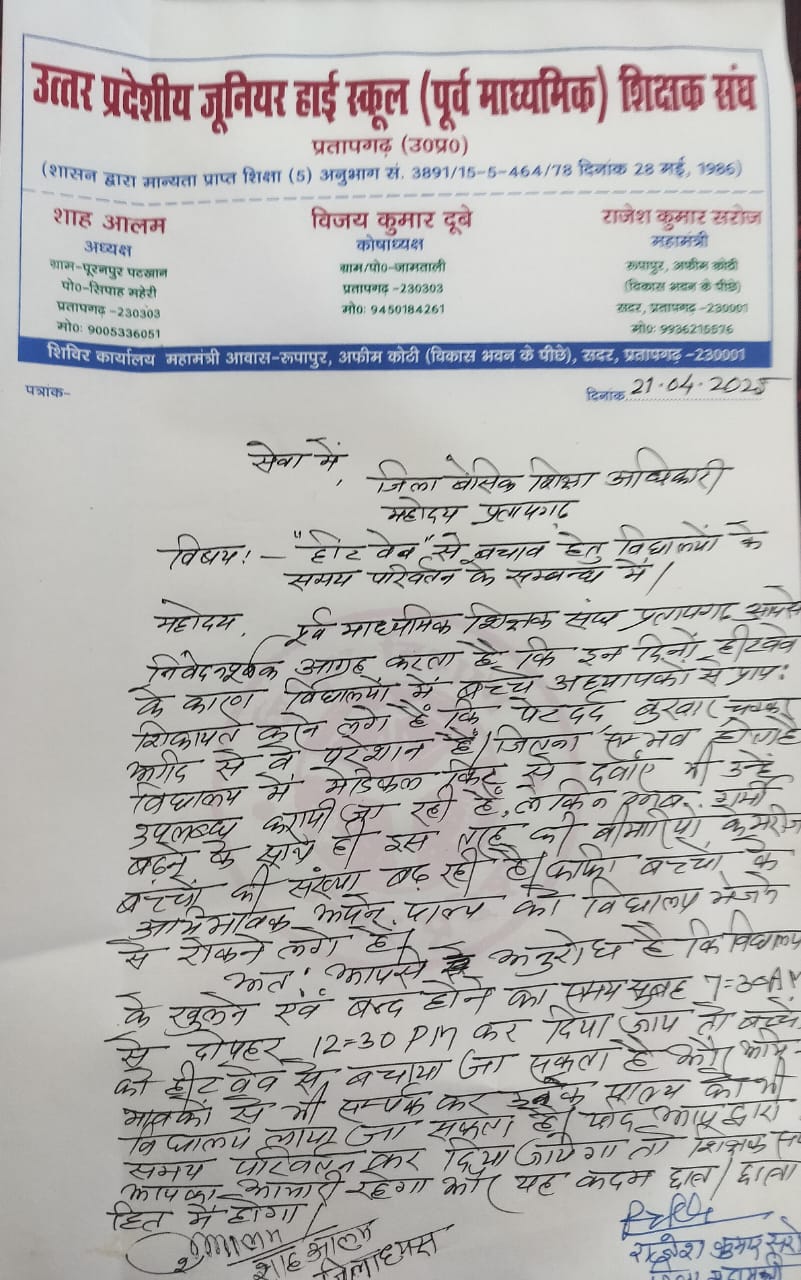 उत्तर प्रदेशीय जूनियर हाई स्कूल (पूर्व माध्यमिक) शिक्षक संघ
प्रतापगढ़ (उ०प्र०)
(शासन द्वारा मान्यता प्राप्त शिक्षा (5) अनुभाग सं. 3891/15-5-464/78 दिनांक 28 मई, 1986)
शाह आलम
अध्यक्ष
ग्राम-पूरनपुर पटखान
पो०-सिपाह महेरी
प्रतापगढ़ -230303
मो०: 9005336051
विजय कुमार दूबे
कोषाध्यक्ष
ग्राम/पो०-जामताली
प्रतापगढ़ -230303
मो०: 9450184261
राजेश कुमार सरोज
महामंत्री
रूपापुर, अफीम कोठी
(विकास भवन के पीछे)
सदर, प्रतापगढ़ -230001
मो०: 9936215576
शिविर कार्यालय महामंत्री आवास-रूपापुर, अफीम कोठी (विकास भवन के पीछे), सदर, प्रतापगढ़ -230001
पत्रांक-
दिनांक 21.04.2025
सेवा में,
जिला बेसिक शिक्षा अधिकारी
महोदय प्रतापगढ़
विषय:- "हीट वेव" से बचाव हेतु विद्यालयों के
समय परिवर्तन के सम्बन्ध में।
महोदय, पूर्व माध्यमिक शिक्षक संघ प्रतापगढ़ आपसे
निवेदनपूर्वक आग्रह करता है कि इन दिनों हीटवेव
के कारण विद्यालयों में बच्चे अध्यापकों से प्राय:
शिकायत करने लगे हैं कि पेटदर्द बुखार चक्कर
आदि से वे परेशान हैं। जितना सम्भव हो
विद्यालय में मेडिकल किट से दवाएं भी उन्हें
उपलब्ध करायी जा रही है, लेकिन गर्मी
बढ़ने के साथ ही इस तरह की बीमारियों के मरीज
बच्चों की संख्या बढ़ रही है। काफी बच्चों के
अभिभावक अपने पाल्य को विद्यालय भेजने
से रोकने लगे हैं।
अत: आपसे अनुरोध है कि विद्यालय
के खुलने एवं बन्द होने का समय सुबह 7=30AM
से दोपहर 12=30 PM कर दिया जाय तो बच्चों
को हीटवेव से बचाया जा सकता है और अभि-
भावकों से भी सम्पर्क कर पाल्य को भी
विद्यालय लाया जा सकता है। यदि आप द्वारा
समय परिवर्तन कर दिया जायेगा तो शिक्षक संघ
आपका आभारी रहेगा और यह कदम छात्र/छात्रा
हित में होगा।
शाह आलम
जिलाध्यक्ष
राजेश कुमार सरोज